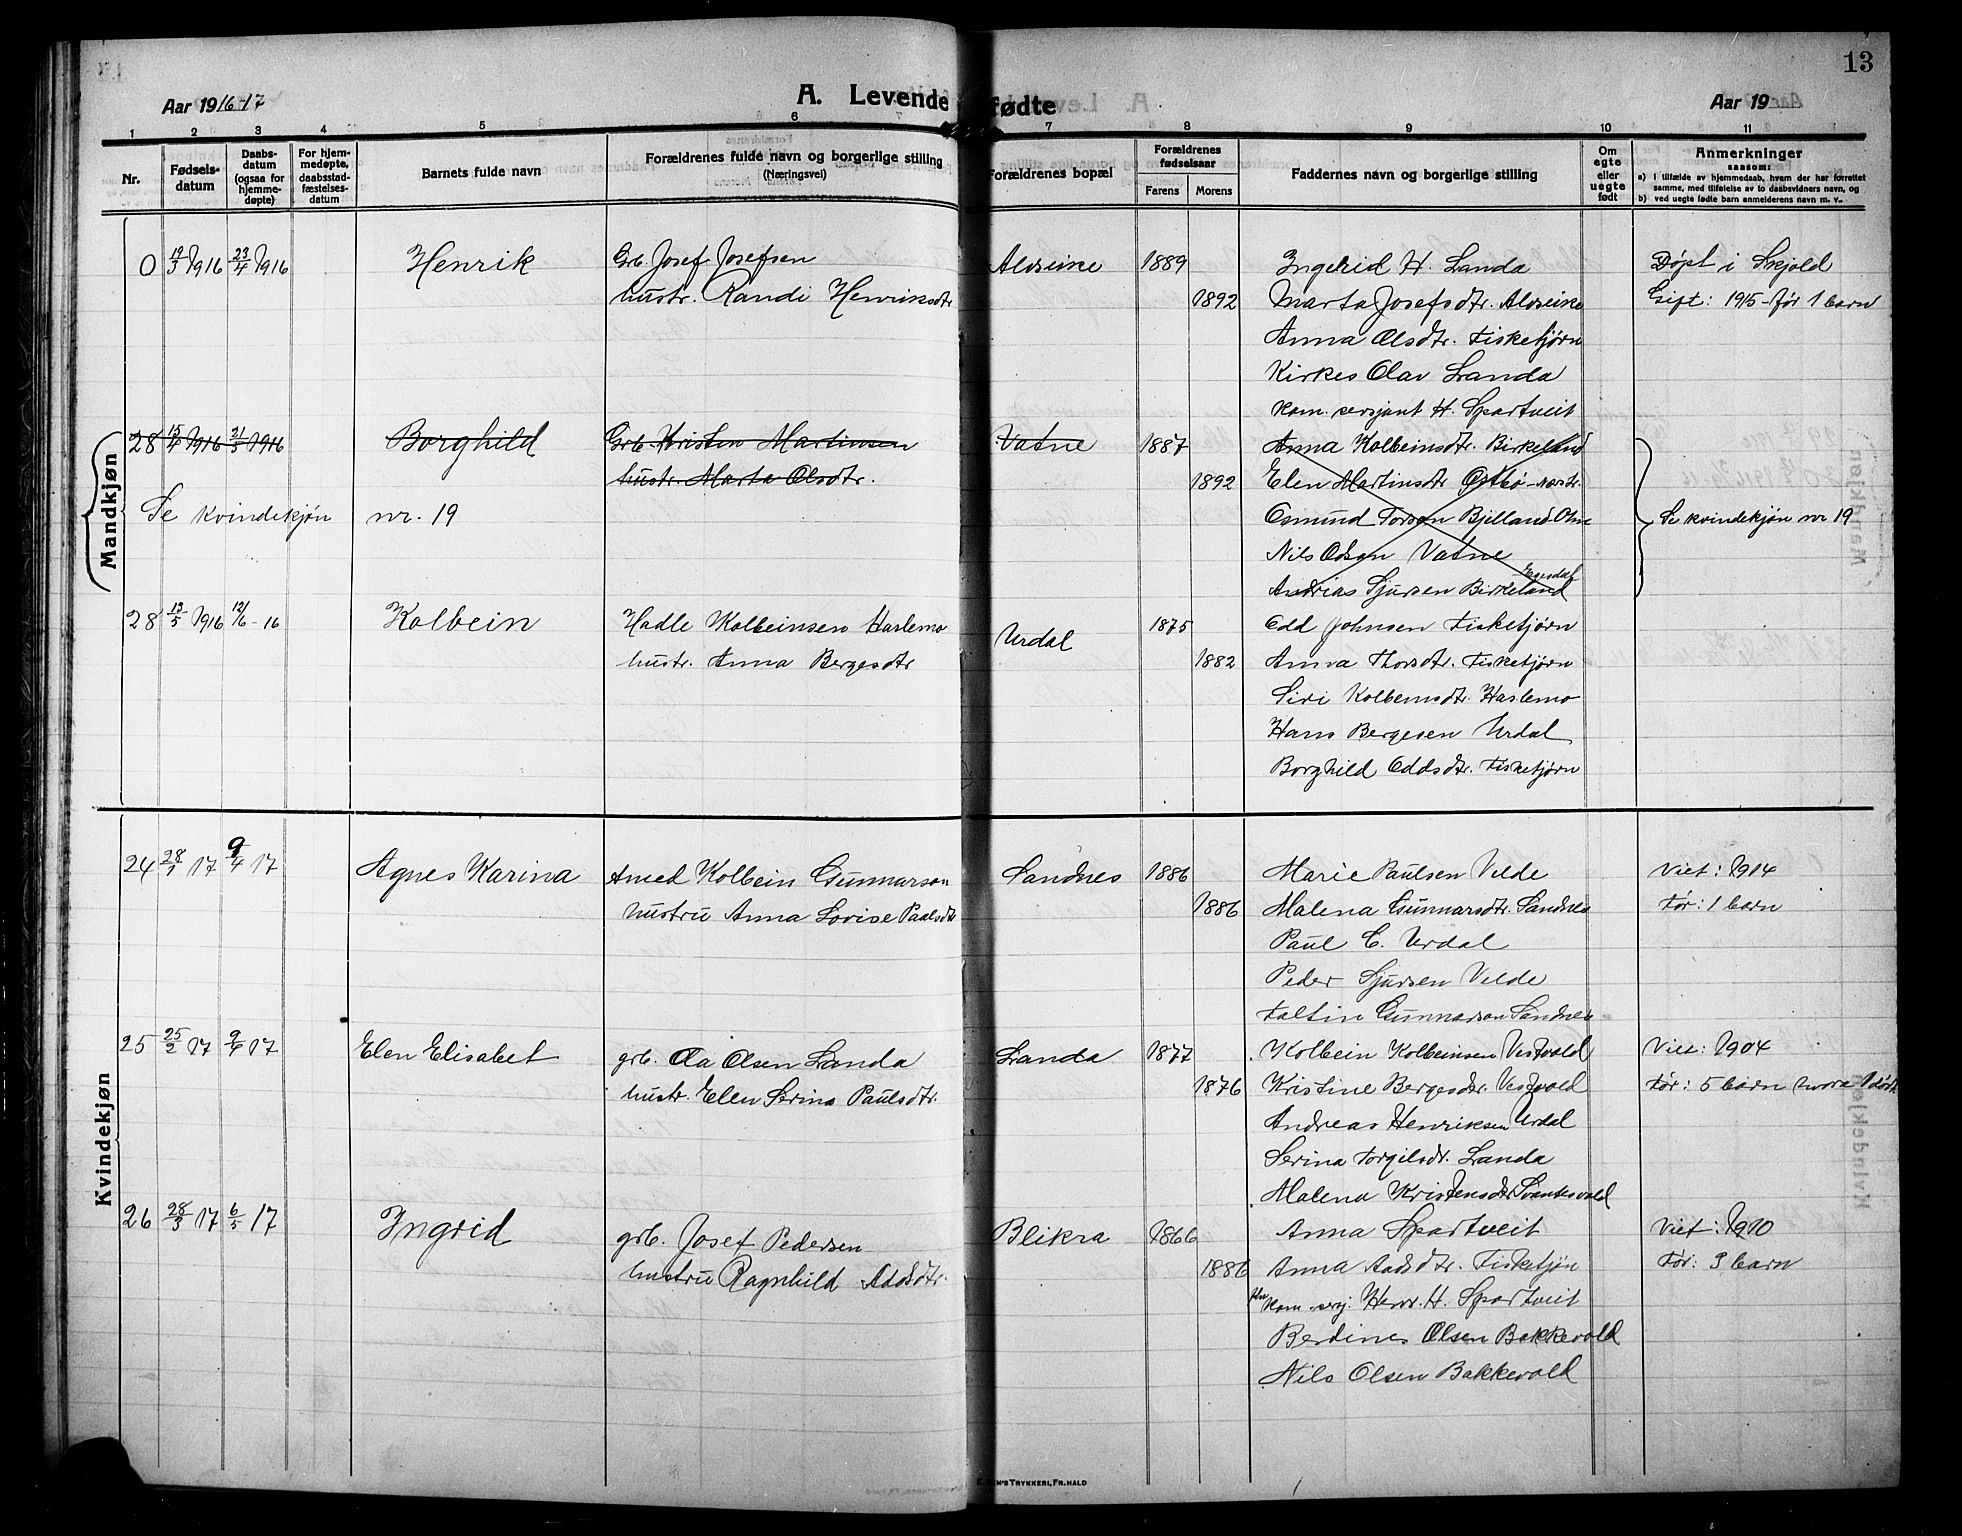 13
Aar 1916-17
A. Levende fødte
Aar 19
1 2 3 4 5 6 7 8 9 10 11
Nr.
Fødsels-
datum
Daabs-
datum
(ogsaa for
hjemme-
døpte)
For hjem-
medøpte,
daabsstad-
fæstelses-
datum
Barnets fulde navn
Forældrenes fulde navn og borgerlige stilling
(Næringsvei)
Forældrenes bopæl
Forældrenes
fødselsaar
Farens Morens
Faddernes navn og borgerlige stilling
Om
egte
eller
uegte
født
Anmerkninger
saasom:
a) i tilfælde av hjemmedaab, hvem der har forrettet
samme, med tilføielse av to daabsvidners navn, og
b) ved uegte fødte barn anmelderens navn m. v.
Mandkjøn
0 19/3 1916 23/4 1916 Henrik Grb. Josef Josefsen Alvseike 1889 Ingerid H. Landa Døpt i Skjold
hustr. Randi Henriksdtr 1892 Marta Josefsdtr. Alvseike Gift: 1915 - før 1 barn
Anna Olsdtr. Fisketjørn
Kirkes. Olav Landa
Kom. sersjant H. Spartveit
28 15/4 1916 21/5 1916 Borghild Grb. Kristen Martinsen Vatne 1887 Anna Kolbeinsdtr. Birkeland
hustr. Marta Olsdtr. 1892 Elen Martinsdtr Østbø
Se kvindekjøn nr. 19 Osmund Torson Bjelland Se kvindekjøn nr 19
Nils Olsen Vatne
Andrias Sjursen Birkeland
28 13/5 1916 12/6 - 16 Kolbein Hadle Kolbeinsen Haslemo Urdal 1875 Odd Johnsen Fisketjørn
hustr. Anna Bergesdtr 1882 Anna Thorsdtr. Fisketjørn
Siri Kolbeinsdtr. Haslemo
Hans Bergesen Urdal
Borghild Oddsdtr. Fisketjørn
Kvindekjøn
24 28/1 17 9/4 17 Agnes Karina Kolbein Gunnarson Sandnes 1886 Marie Paulsen Velde Viet: 1914
hustru Anna Lovise Paalsdtr 1886 Malena Gunnarsdtr. Sandnes Før: 1 barn
Paul C. Urdal
Peder Sjursen Velde
Faltin Gunnarson Sandnes
25 25/2 17 9/4 17 Elen Elisabet grb. Ola Olsen Landa Landa 1877 Kolbein Kolbeinsen Vestvold Viet: 1904
hustr. Elen Serina Paulsdtr. 1876 Kristine Bergesdtr. Vestvold Før: 5 barn hvorav 1 død
Andreas Henriksen Urdal
Serina Torgilsdr. Landa
Malena Kristensdtr Svantesvold
26 28/3 17 6/5 17 Ingrid grb. Josef Pedersen Blikra 1866 Anna Spartveit Viet: 1910
hustru Ragnhild Addsdtr. 1886 Anna Aadsdtr. Fisketjøn Før: 3 barn
Kom. serj. Henr. H. Spartveit
Berdines Olsen Bakkevold
Nils Olsen Bakkevold
Trykkeri, Fr.hald